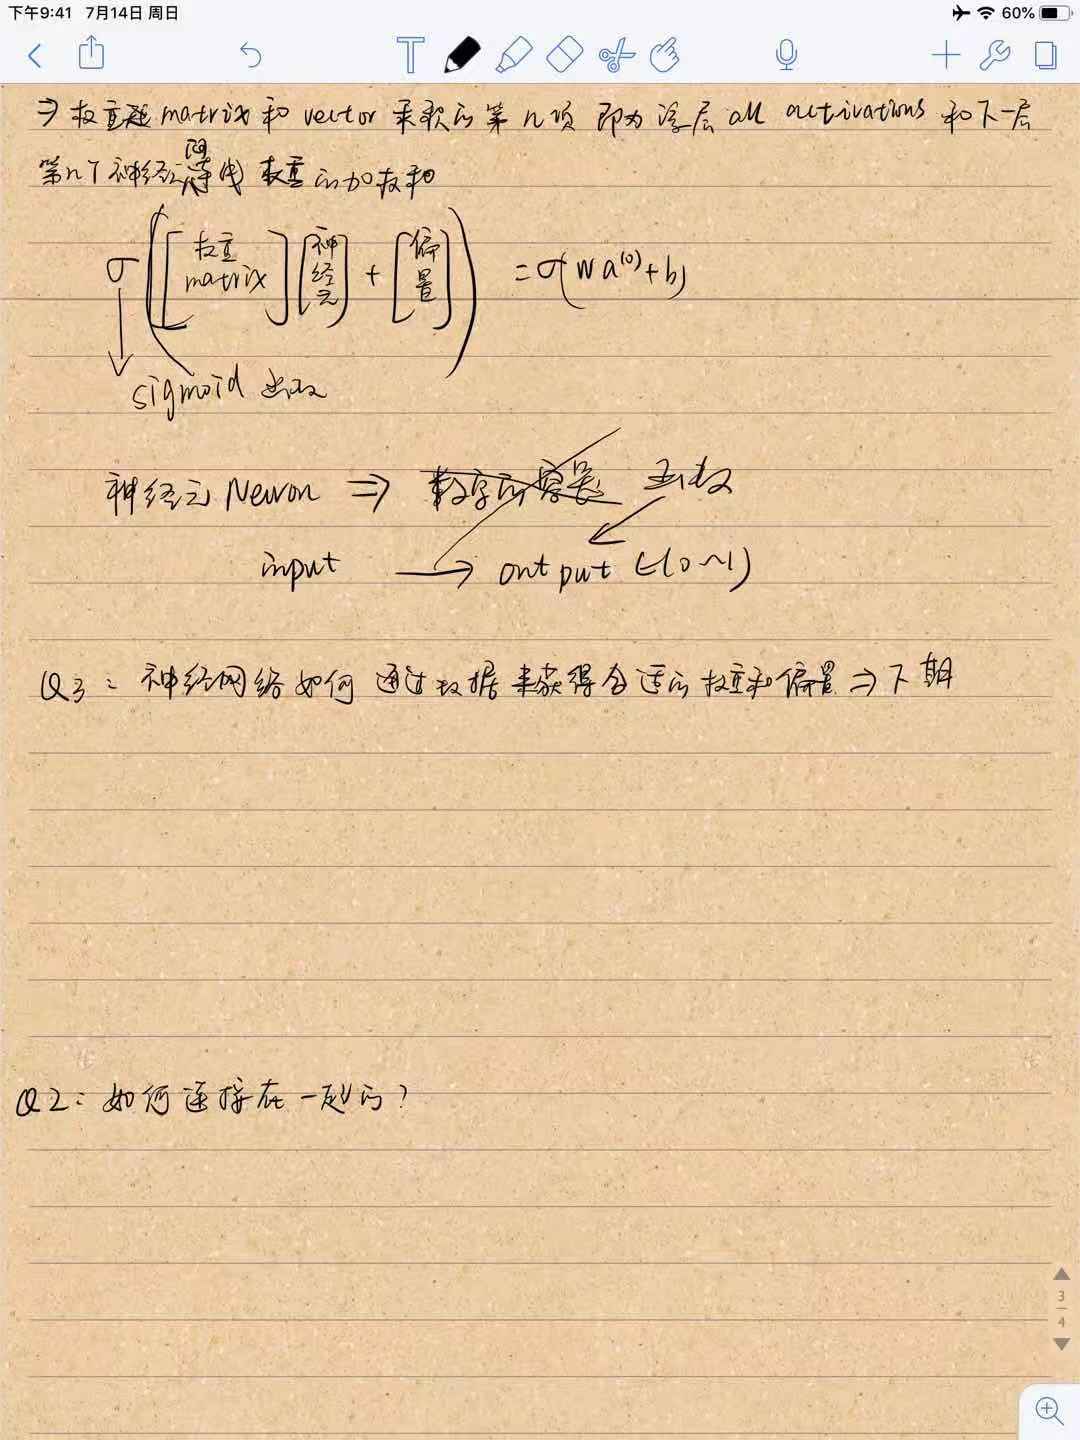 下午9:41 7月14日 周日
60%
T
⇒ 权重 matrix 和 vector 乘积的第 n 项 即为 该层 all activations 和下一层
第n个神经 连线 权重的加权和
σ([权重 matrix][神经元] + [偏置]) = σ(Wa⁽⁰⁾+b)
sigmoid 函数
神经元 Neuron ⇒ 数字的容器 函数
input → output (0~1)
Q3: 神经网络如何通过数据来获得合适的权重和偏置 ⇒ 下期
Q2: 如何连接在一起的?
3
4